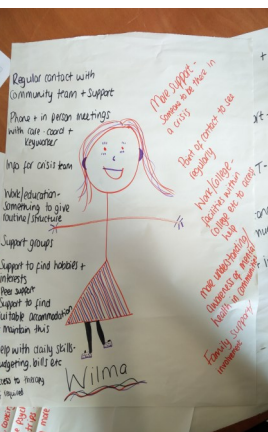 Regular contact with
Community team + Support
Phone + in person meetings
with care-coord +
keyworker
Info for crisis team
Work/education-
Something to give
routine/structure
Support groups
Support to find hobbies +
interests
Peer support
Support to find
suitable accommodation
+ maintain this
Help with daily skills-
budgeting, bills etc
access to therapy
if required
Wilma
More support -
someone to be there in
a crisis
Point of contact to see
regularly
Work/college-
facilities within
college etc to access
help
more understanding/
awareness of mental
health in community
Family support/
involvement
more